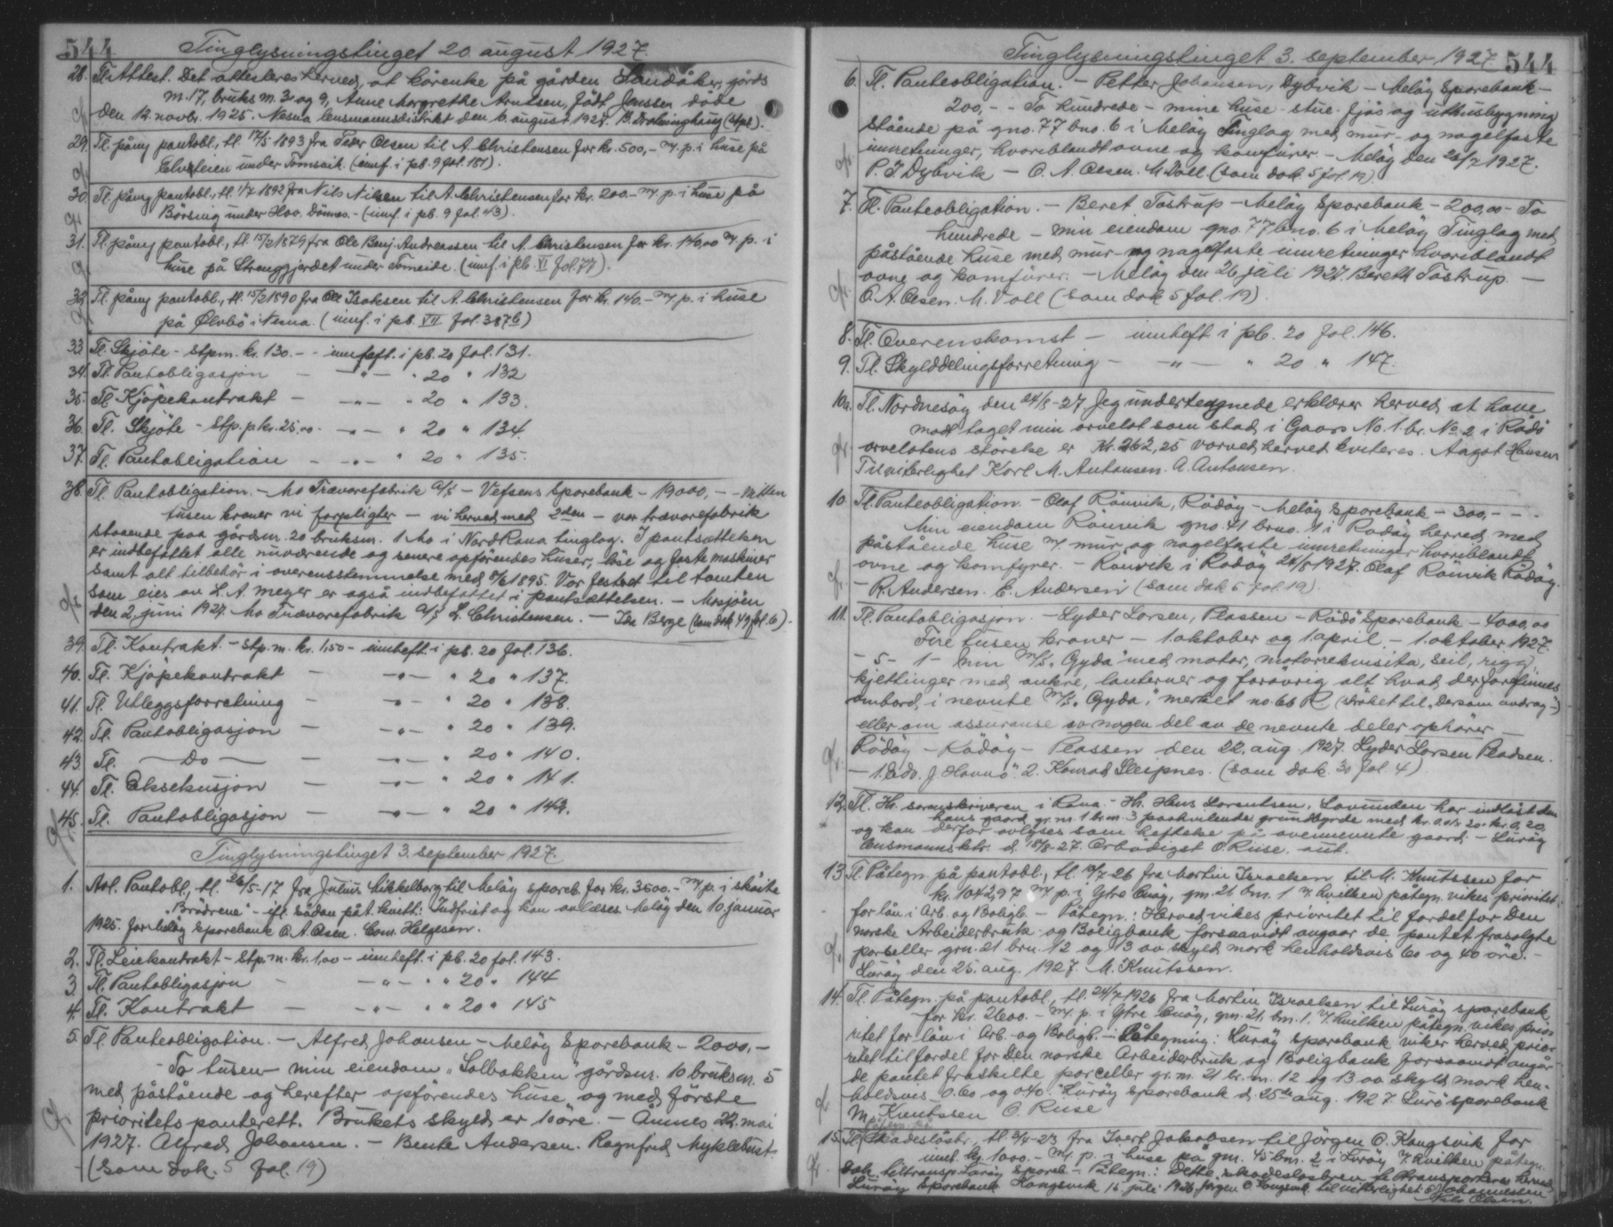 544
Tinglysningstinget 20 august 1927.
28. Tl. Attest. Det attesteres herved, at kårenke på gården Sandåker, gårds
nr. 17, bruks nr. 3 og 9, Anne Margrethe Arntsen, född Jenssen döde
den 12. novbr. 1925. Nesna lensmannsdistrikt den 6. august 1927.
29. Tl. påny pantobl., tl. 1893 fra Peder Olsen til A. Christensen for kr. 500,- m/ p. i huse på
under (innf. i pb. 9 fol. 181).
30. Tl. påny pantobl., tl. 1/7 1892 fra Nils Nilsen til A. Christensen for kr. 200.- m/ p. i huse på
under Hov. Dönnes. - (innf. i pb. 9 fol. 43).
31. Tl. påny pantobl., tl. 15/2 1879 fra Ole Benj. Andreassen til A. Christensen for kr. 140,00 m/ p. i
huse på under (innf. i pb. VI fol. 77).
32. Tl. påny pantobl., tl. 15/2 1890 fra Ole Isaksen til A. Christensen for kr. 140.- m/ p. i huse
på i Nesna. (innf. i pb. VII fol. 387b)
33. Tl. Skjöte - Stpm. kr. 130.- - innheft. i pb. 20 fol. 131.
34. Tl. Pantobligasjon - -"- " 20 " 132
35. Tl. Kjöpekontrakt - -"- " 20 " 133.
36. Tl. Skjöte - Stp. p kr. 25,00 - -"- " 20 " 134.
37. Tl. Pantobligation - -"- " 20 " 135.
38. Tl. Pantobligation. - Mo Trævarefabrik A/S - Vefsens Sparebank - 19000,- - Nitten
tusen kroner vi forpligter - vi herved med 2den - vor trævarefabrik
staaende paa gårdsnr. 20 bruksnr. 1 Mo i NordRana tinglag. I pantsættelsen
er indbefattet alle nuværende og senere opförendes huser, löse og faste maskiner
samt alt tilbehör i overensstemmelse med 1895. Vor festeret til tomten
som eies av L. A. Meyer er også indbefattet i pantsættelsen. - Mosjöen
den 2. juni 1927 Mo Trævarefabrik A/S L. Christensen. - Berge (som dok 49 fol. 6).
39. Tl. Kontrakt - Stp. m. kr. 1,50 - innheft. i pb. 20 fol. 136.
40. Tl. Kjöpekontrakt - -"- " 20 " 137.
41. Tl. Utleggsforretning - -"- " 20 " 138.
42. Tl. Pantobligasjon - -"- " 20 " 139.
43. Tl. - Do - - -"- " 20 " 140.
44. Tl. Eksekusjon - -"- " 20 " 141.
45. Tl. Pantobligasjon - -"- " 20 " 142.
Tinglysningstinget 3. september 1927.
1. Avl. Pantobl., tl. 26/5-17 fra Julius Mikkelborg til Melöy spareb. for kr. 3600.- m/ p. i sköite
"Brödrene" - ifl. sådan påt. kvitt: Indfriet og kan avlæses Melöy den 10. januar
1925. for Melöy Sparebank O. A. Olsen. Helgesen.
2. Tl. Leiekontrakt - Stp. m. kr. 1,00 - innheft. i pb. 20 fol. 143.
3. Tl. Pantobligasjon - -"- " " 20 " 144
4. Tl. Kontrakt - -"- " " 20 " 145
5. Tl. Panteobligation. - Alfred Johansen - Melöy Sparebank - 2000,-
- To tusen - min eiendom "Solbakken" gårdsnr. 10 bruksnr. 5
med påstående og herefter opförendes huse og med förste
prioritets panterett. Brukets skyld er 10 öre. - Åmnes 22. mai
1927. Alfred Johansen. - Bente Andersen. Ragnfred Myklebust.
(som dok. 5 fol. 19)
Tinglysningstinget 3. september 1927.
544
6. Tl. Panteobligation. - Petter Johansen, Dybvik - Melöy Sparebank -
200,- - To hundrede - mine huse - stue, fjös og uthusbygning
stående på gno. 77 bno. 6 i Melöy Tinglag med mur- og nagelfaste
innretninger, hvoriblandt ovne og komfürer. - Melöy den 26/7 1927.
P. J. Dybvik - O. A. Olsen. M. Voll (som dok 5 fol 19).
7. Tl. Panteobligation. - Beret Tostrup - Melöy Sparebank - 200,00 - To
hundrede - min eiendom gno. 77 bno. 6 i Melöy Tinglag med
påstående huse med mur- og nagelfaste innretninger hvoriblandt
ovne og komfürer. - Melöy den 26 juli 1927. Bereth Tostrup. -
O. A. Olsen. M. Voll (som dok 5 fol. 19).
8. Tl. Overenskomst - innheft i pb. 20 fol. 146.
9. Tl. Skylddelingsforretning - -"- " 20 " 147.
10a. Tl. Nordnesöy den 24/5-27 Jeg undertegnede erklærer herved at have
modtaget min arvelot som stod i Gaars No. 1. br. No 2 i Rödö
arvelotens störelse er Kr. 262,25 vorved herved kviteres. Aagot Hansen
Til viterlighet Karl M. Antonsen. A. Antonsen.
10. Tl. Panteobligation - Olaf Rönvik, Rödöy - Melöy Sparebank - 300,- - -
Min eiendom Rönvik gno. 41 bno. 1 i Rödöy herred med
påstående huse m/ mur og nagelfaste innretninger hvoriblandt
ovne og komfyrer. - Ronvik i Rodöy 26/5 1927. Olaf Rönvik Rödöy.
- R. Andersen. E. Andersen (som dok 5 fol. 19)
11. Tl. Pantobligasjon. - Lyder Larsen, Plassen - Rödö Sparebank - 4000,00
Fire tusen kroner - 1. oktober og 1. april. - 1. oktober 1927.
- 5 - 1 - min m/s. "Gyda" med motor, motorrekvisita, seil, rigg,
kjettinger med ankre, lanterner og forövrig alt hvad der forefinnes
ombord, i nevnte m/s. "Gyda", merket no. 66 R (ströket til "Dersom andrag")
eller om assuranse av nogen del av de nevnte deler ophörer -
Rödöy - Rödöy - Plassen den 22. aug. 1927. Lyder Larsen Pladsen.
- 1. J. Havnö. 2. Konrad Sleipnes. (som dok. 30 fol. 4)
12. Tl. Hr. sorenskriveren i Rana - Hr. Hans Lorentsen, Lovunden har indlöst den
hans gaard gr. nr. 1 br. nr. 3 paahvilende grundbyrde med kr. 0,20
og kan derfor avlyses som heftelse på ovennevnte gaard. - Luröy
lensmannsktr. d. 27. Ærbödigst O. Ruse. aut.
13. Tl. Påtegn. på pantobl., tl. 26 fra Martin Israelsen til M. Knutssen for
kr. 1042,97 m/ p. i Ytre Kvöy, gnr. 21 bnr. 1 v/ hvilken påtegn. vikes prioritet
for lån i Arb. og Boligb. - Påtegn.: Herved vikes prioritet til fordel for Den
norske Arbeiderbruk- og Boligbank forsaavidt angaar de pantet frasolgte
parseller grn. 21 brn. 12 og 13 av skyld mark henholdsvis 60 og 40 öre. -
Luröy den 25. aug. 1927. M. Knutssen.
14. Tl. Påtegn. på pantobl., tl. 24/7 1926 fra Martin Israelsen til Luröy sparebank
for kr. 2600.- m/ p. i Ytre Kvöy, gnr. 21, bnr. 1. v/ hvilken påtegn. vikes prio-
ritet for lån i Arb.- og Boligb. - Påtegning: Luröy Sparebank viker herved prior-
itet til fordel for Den norske Arbeiderbruk og Boligbank forsaavidt angår
de pantet fraskilte parceller gr. nr. 21 br. nr. 12 og 13 av skyld mark hen-
holdsvis 0.60 og 0.40. Luröy Sparebank d. 25de aug. 1927. Lurö sparebank
M. Knutssen O. Ruse
15. Tl. Påtegn. på Skadeslösbr., tl. 23 fra Ivert Jakobsen til Jörgen O. Kongsvik for
inntl. kr. 1000.- m/ p. i huse på gnr. 45 bnr. 2 i Luröy v/ hvilken påtegn.
dok. tiltransp. Luröy spareb. - Påtegn.: Dette skadeslösbrev tiltransporteres herved
Luröy Sparebank. Kongsvik 15. juli 1926. Jörgen O. Kongsvik. Til vitterlighet: Johannessen
Olsen.